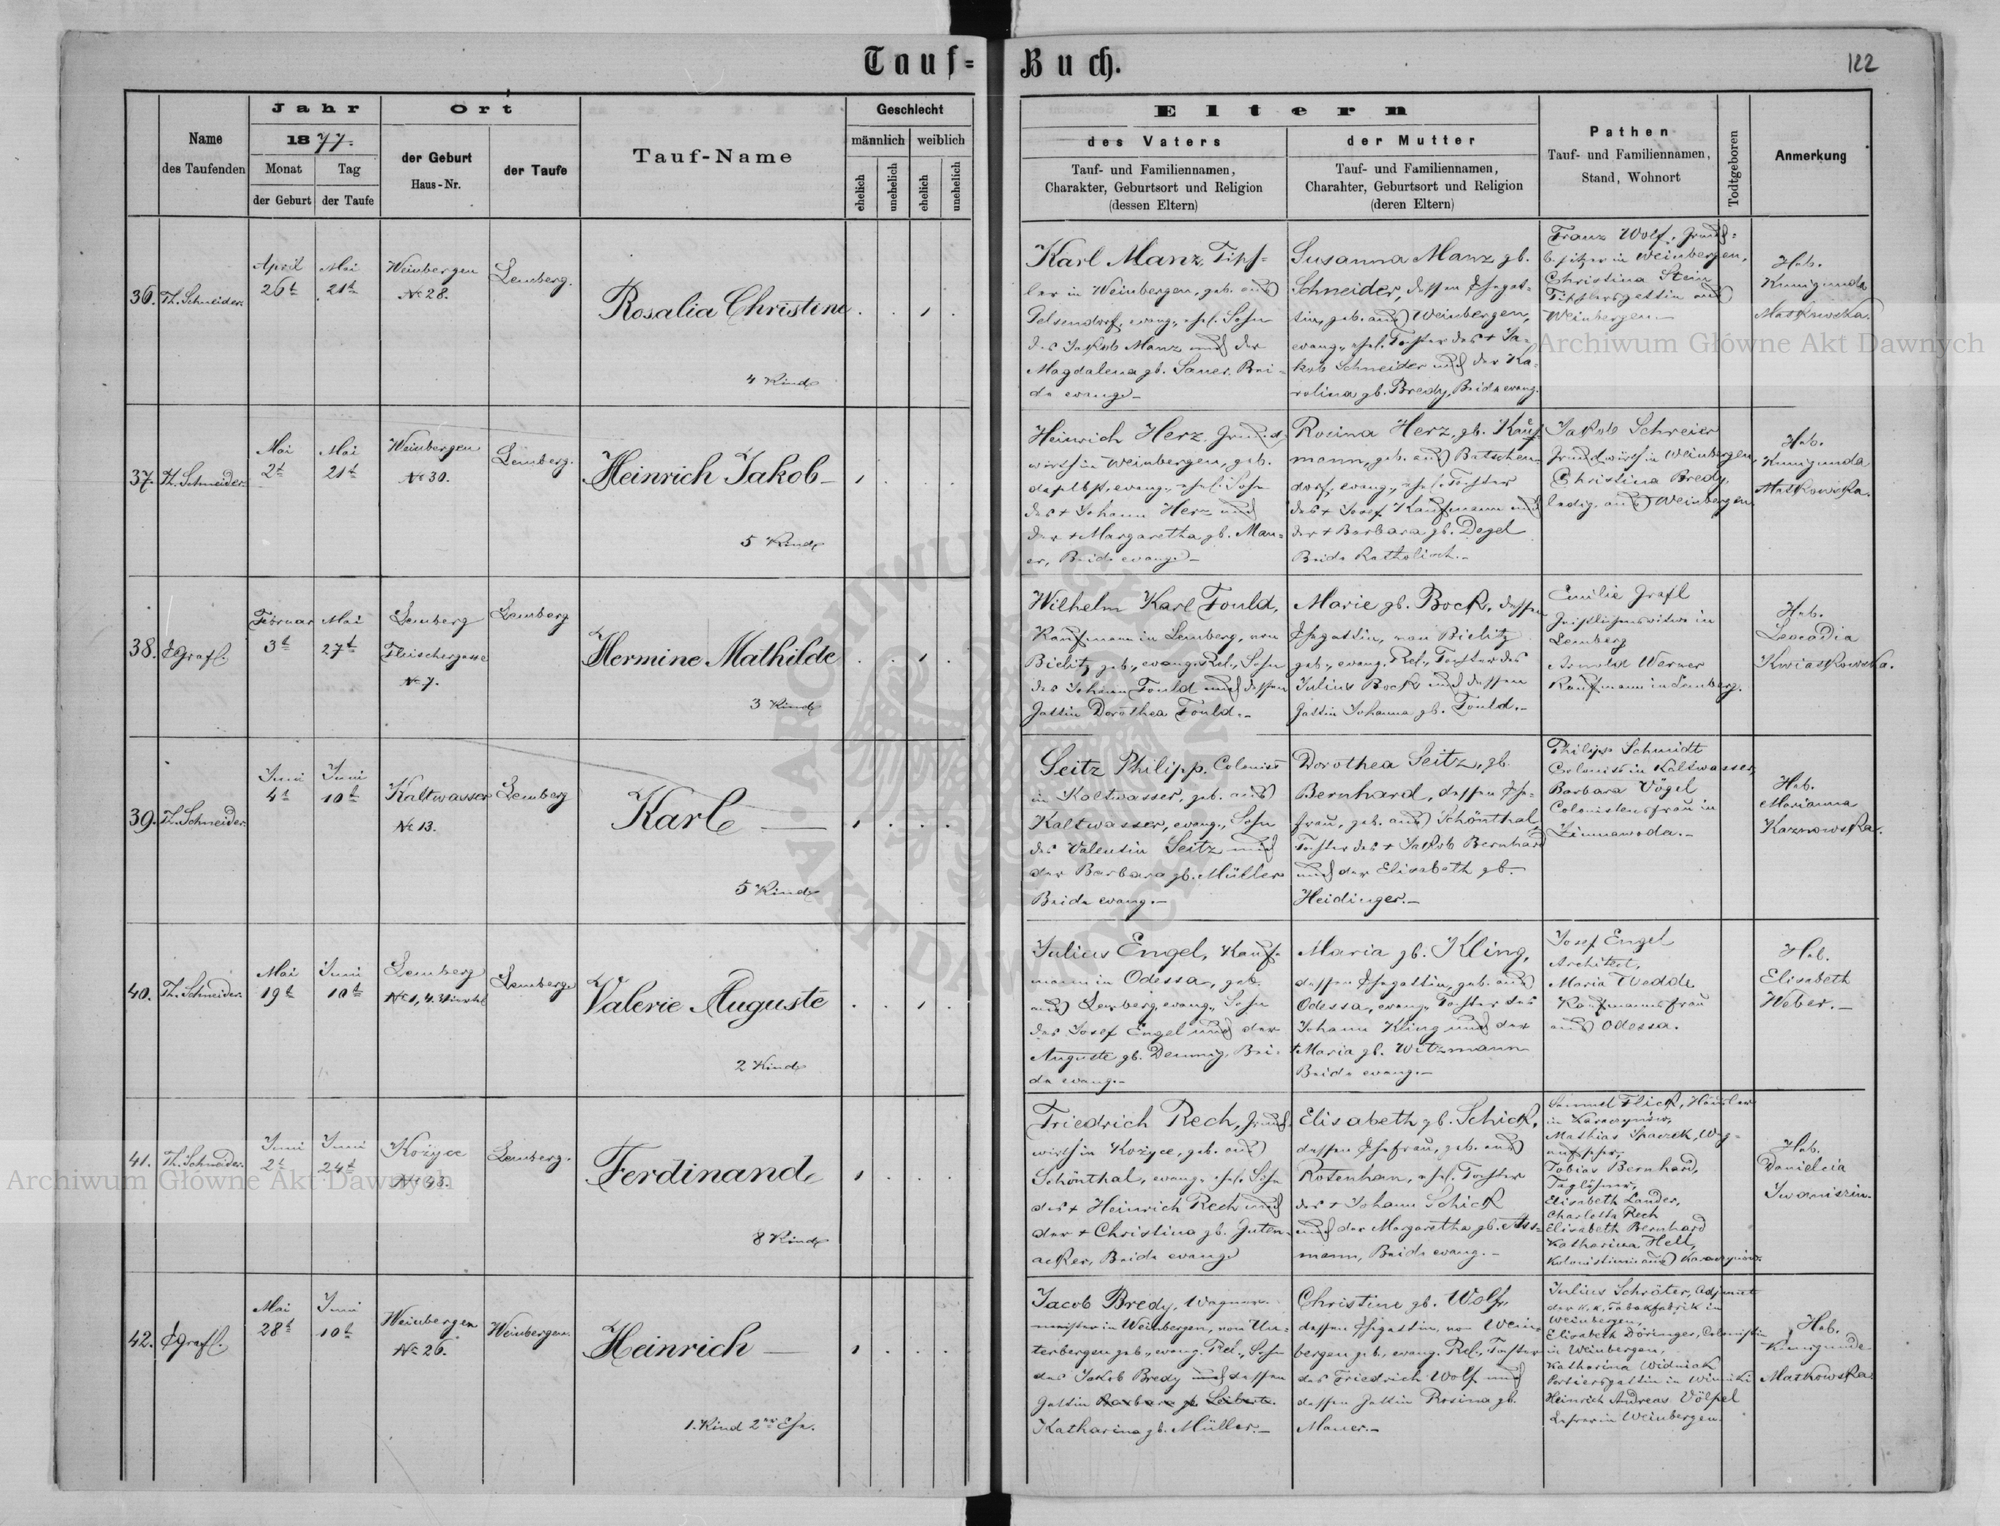 Tauf-Buch.
122
Name
des Taufenden
Jahr
1877.
Monat
der Geburt
Tag
der Taufe
Ort
der Geburt
Haus-Nr.
der Taufe
Tauf-Name
Geschlecht
männlich
weiblich
ehelich
unehelich
ehelich
unehelich
Eltern
des Vaters
Tauf- und Familiennamen,
Charakter, Geburtsort und Religion
(dessen Eltern)
der Mutter
Tauf- und Familiennamen,
Charakter, Geburtsort und Religion
(deren Eltern)
Pathen
Tauf- und Familiennamen,
Stand, Wohnort
Todtgeboren
Anmerkung
36.
Th. Schneider.
April
26t
Mai
21t
Weinbergen
No 28.
Lemberg.
Rosalia Christine
4 Kind
Karl Manz, Tisch-
ler in Weinbergen, geb. aus
evang., ehel. Sohn
des Jakob Manz und der
Magdalena gb. Sauer, Bei-
de evang.
Susanna Manz gb.
Schneider, dessen Ehegat-
tin, geb. aus Weinbergen,
evang., ehel. Tochter des + Ja-
kob Schneider und der Ka-
rolina gb. Bredy, Beide evang.
Franz Wolf, Grund-
besitzer in Weinbergen,
Christina Stein
Tischlersgattin aus
Weinbergen.
Heb.
Kunigunda
Matkowska.
37.
Th. Schneider.
Mai
2t
Mai
21t
Weinbergen
No 30.
Lemberg.
Heinrich Jakob
5 Kind
Heinrich Herz, Grund-
wirth in Weinbergen, geb.
daselbst, evang., ehel. Sohn
des + Johann Herz und
der + Margaretha gb. Mau-
er, Beide evang.
Rosina Herz, gb. Kauf-
mann, geb. aus
dorf, evang., ehel. Tochter
des + Josef Kaufmann und
der + Barbara gb. Degel
Beide Katholisch.
Jakob Schreier
Grundwirth in Weinbergen,
Christina Bredy,
ledig aus Weinbergen
Heb.
Kunigunda
Matkowska.
38.
Grafl.
Februar
3t
Mai
27t
Lemberg
Fleischergasse
No 7.
Lemberg
Hermine Mathilde
3 Kind
Wilhelm Karl Fould,
Kaufmann in Lemberg, von
Bielitz geb., evang. Rel., Sohn
des Johann Fould und dessen
Gattin Dorothea Fould.
Marie gb. Bock, dessen
Ehegattin, von Bielitz
geb., evang. Rel., Tochter des
Julius Bock und dessen
Gattin Johanna gb. Fould.
Emilie Grafl
in
Lemberg
Arnold Werner
Kaufmann in Lemberg.
Heb.
Leocadia
Kwiatkowska.
39.
Th. Schneider.
Juni
4t
Juni
10t
Kaltwasser
No 13.
Lemberg
Karl
5 Kind
Seitz Philipp, Colonist
in Kaltwasser, geb. aus
Kaltwasser, evang., Sohn
des Valentin Seitz und
der Barbara gb. Müller
Beide evang.
Dorothea Seitz, gb.
Bernhard, dessen Ehe-
frau, geb. aus Schönthal,
Tochter des + Jakob Bernhard
und der Elisabeth gb.
Heidinger.
Philipp Schmidt
Colonist in Kaltwasser,
Barbara Vögel
Colonistensfrau in
Zimnawoda.
Heb.
Marianna
Kaznowska.
40.
Th. Schneider.
Mai
19t
Juni
10t
Lemberg
No 1, 4. Viertel
Lemberg
Valerie Auguste
2 Kind
Julius Engel, Kauf-
mann in Odessa, geb.
aus Lemberg, evang., Sohn
des Josef Engel und der
Auguste gb. Bei-
de evang.
Maria gb. Kling,
dessen Ehegattin, geb. aus
Odessa, evang., Tochter des
Johann Kling und der
+ Maria gb. Witzmann
Beide evang.
Josef Engel
Architect,
Maria Wedde
Kaufmannsfrau
aus Odessa.
Heb.
Elisabeth
Weber.
41.
Th. Schneider.
Juni
2t
Juni
24t
Kożyce
Lemberg.
Ferdinand
8 Kind
Friedrich Rech, Grund-
wirth in Kożyce, geb. aus
Schönthal, evang., ehel. Sohn
des + Heinrich Rech und
der + Christina gb. Guten-
acker, Beide evang.
Elisabeth gb. Schick,
dessen Ehefrau, geb. aus
Rotenhan, ehel. Tochter
des + Johann Schick
und der Margaretha gb. Ass-
mann, Beide evang.
Samuel Flick, Häusler
in
Mathias
Tobias Bernhard,
Taglöhner,
Elisabeth Lander,
Charlotta Rech
Elisabeth Bernhard
Katharina Hell,
Heb.
42.
Grafl.
Mai
28t
Juni
10t
Weinbergen
No 26.
Weinbergen
Heinrich
1. Kind 2ter Ehe.
Jacob Bredy, Wagner-
meister in Weinbergen, von Un-
terbergen geb., evang. Rel., Sohn
des Jakob Bredy und dessen
Gattin Barbara gb. Leibert.
Katharina gb. Müller.
Christine gb. Wolf,
dessen Ehegattin, von Wein-
bergen geb., evang. Rel., Tochter
des Friedrich Wolf und
dessen Gattin Rosina gb.
Mauer.
Julius Schröter, Adjunct
der k. k. Tabakfabrik in
Weinbergen,
Elisabeth Döringer, Colonistin
in Weinbergen,
Katharina Widniak
Portiersgattin in Winniki
Heinrich Andreas Völpel
Lehrer in Weinbergen.
Heb.
Kunigunde
Matkowska
Archiwum Główne Akt Dawnych
Archiwum Główne Akt Dawnych
ARCHIWUM GŁÓWNE AKT DAWNYCH